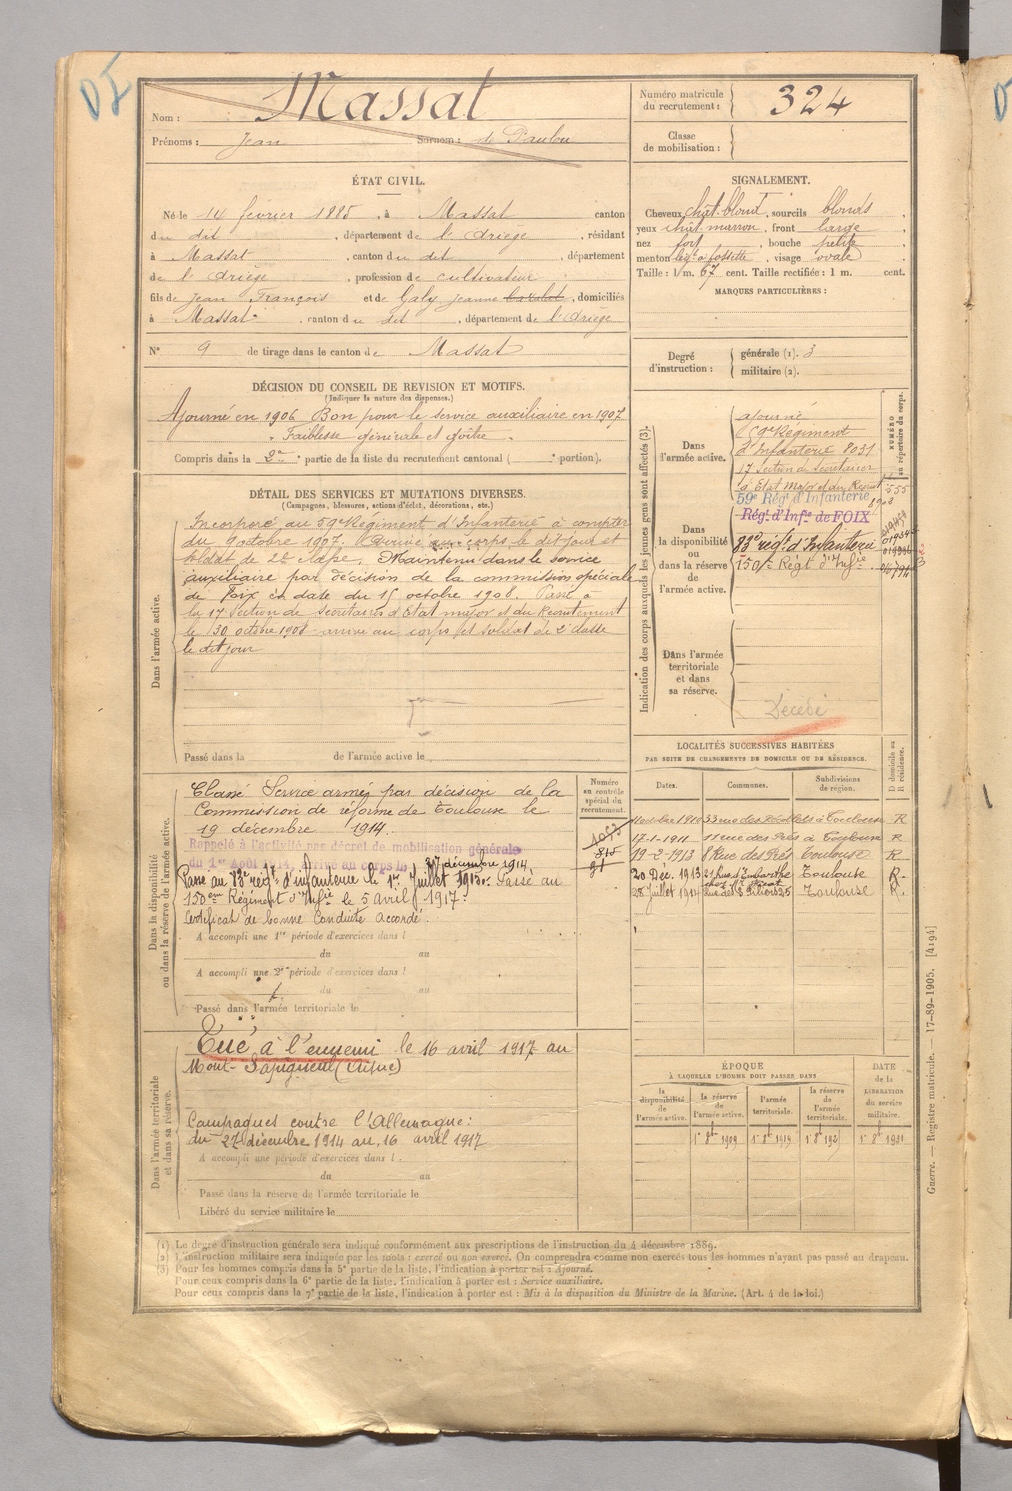 Nom : Massat
Prénoms : Jean Surnom : de Paulou
Numéro matricule du recrutement : 324
Classe de mobilisation :
ÉTAT CIVIL.
Né le 14 février 1885, à Massat canton
du dit, département de l'Ariège, résidant
à Massat, canton du dit, département
de l'Ariège, profession de cultivateur
fils de Jean François et de Galy Jeanne, domiciliés
à Massat, canton du dit, département de l'Ariège
N° 9 de tirage dans le canton de Massat
SIGNALEMENT.
Cheveux chât. blond, sourcils blonds,
yeux chât. marron, front large,
nez fort, bouche petite,
menton lég. à fossette, visage ovale
Taille : 1 m. 67 cent. Taille rectifiée : 1 m. cent.
MARQUES PARTICULIÈRES :
Degré d'instruction : générale (1). 3
militaire (2).
DÉCISION DU CONSEIL DE REVISION ET MOTIFS.
(Indiquer la nature des dispenses.)
Ajourné en 1906 Bon pour le service auxiliaire en 1907
Faiblesse générale et goître.
Compris dans la 2e partie de la liste du recrutement cantonal ( portion).
DÉTAIL DES SERVICES ET MUTATIONS DIVERSES.
(Campagnes, blessures, actions d'éclat, décorations, etc.)
Dans l'armée active.
Incorporé au 59e Régiment d'Infanterie à compter
du 9 octobre 1907. Arrivé au corps le dit jour et
soldat de 2e classe. Maintenu dans le service
auxiliaire par décision de la commission spéciale
de Foix en date du 15 octobre 1908. Passé à
la 17 Section de Secrétaires d'Etat major et du Recrutement
le 30 octobre 1908 arrivé au corps et soldat de 2e classe
le dit jour
Passé dans la de l'armée active le
Indication des corps auxquels les jeunes gens sont affectés (3).
NUMÉRO au répertoire du corps.
Dans l'armée active.
ajourné
59e Régiment
d'Infanterie 8031
17 Section de Secrétaires
d'Etat Major et du Recrut 555
Dans la disponibilité ou dans la réserve de l'armée active.
59e Rég. d'Infanterie
Régt. d'Infie de FOIX
83e régt. d'Infanterie
150e Régt d'Infie
Dans l'armée territoriale et dans sa réserve.
Décédé
Dans la disponibilité ou dans la réserve de l'armée active.
Numéro au contrôle spécial du recrutement.
Classé Service armé par décision de la
Commission de réforme de Toulouse le
19 décembre 1914.
Rappelé à l'activité par décret de mobilisation générale
du 1er Août 1914. Arrivé au corps le 27 décembre 1914
Passé au 83e régt. d'infanterie le 1er Juillet 1915. Passé au
150ème Régiment d'Infie le 5 Avril 1917.
Certificat de bonne conduite accordé.
A accompli une 1re période d'exercices dans l
du au
A accompli une 2e période d'exercices dans l
du au
Passé dans l'armée territoriale le
LOCALITÉS SUCCESSIVES HABITÉES
PAR SUITE DE CHANGEMENTS DE DOMICILE OU DE RÉSIDENCE.
Dates. Communes. Subdivisions de région. D domicile ou R résidence.
17-1-1911 11 rue des Prés à Toulouse R
19-2-1913 8 Rue des Prés Toulouse R
20 Déc. 1913 Toulouse R.
28 Juillet 1914 Toulouse R.
Dans l'armée territoriale et dans sa réserve.
Tué à l'ennemi le 16 avril 1917 au
Mont-Sapigneul (Aisne)
Campagnes contre l'Allemagne :
du 27 décembre 1914 au 16 avril 1917
A accompli une période d'exercices dans l
du au
Passé dans la réserve de l'armée territoriale le
Libéré du service militaire le
ÉPOQUE
À LAQUELLE L'HOMME DOIT PASSER DANS
DATE de la LIBÉRATION du service militaire.
la disponibilité de l'armée active. la réserve de l'armée active. l'armée territoriale. la réserve de l'armée territoriale.
1r 8bre 1909 1r 8bre 1919 1r 8bre 1931
(1) Le degré d'instruction générale sera indiqué conformément aux prescriptions de l'instruction du 4 décembre 1889.
(2) L'instruction militaire sera indiquée par les mots : exercé ou non exercé. On comprendra comme non exercés tous les hommes n'ayant pas passé au drapeau.
(3) Pour les hommes compris dans la 5e partie de la liste, l'indication à porter est : Ajourné.
Pour ceux compris dans la 6e partie de la liste, l'indication à porter est : Service auxiliaire.
Pour ceux compris dans la 7e partie de la liste, l'indication à porter est : Mis à la disposition du Ministre de la Marine. (Art. 4 de la loi.)
Guerre. — Registre matricule. — 17-89-1905. [4194]